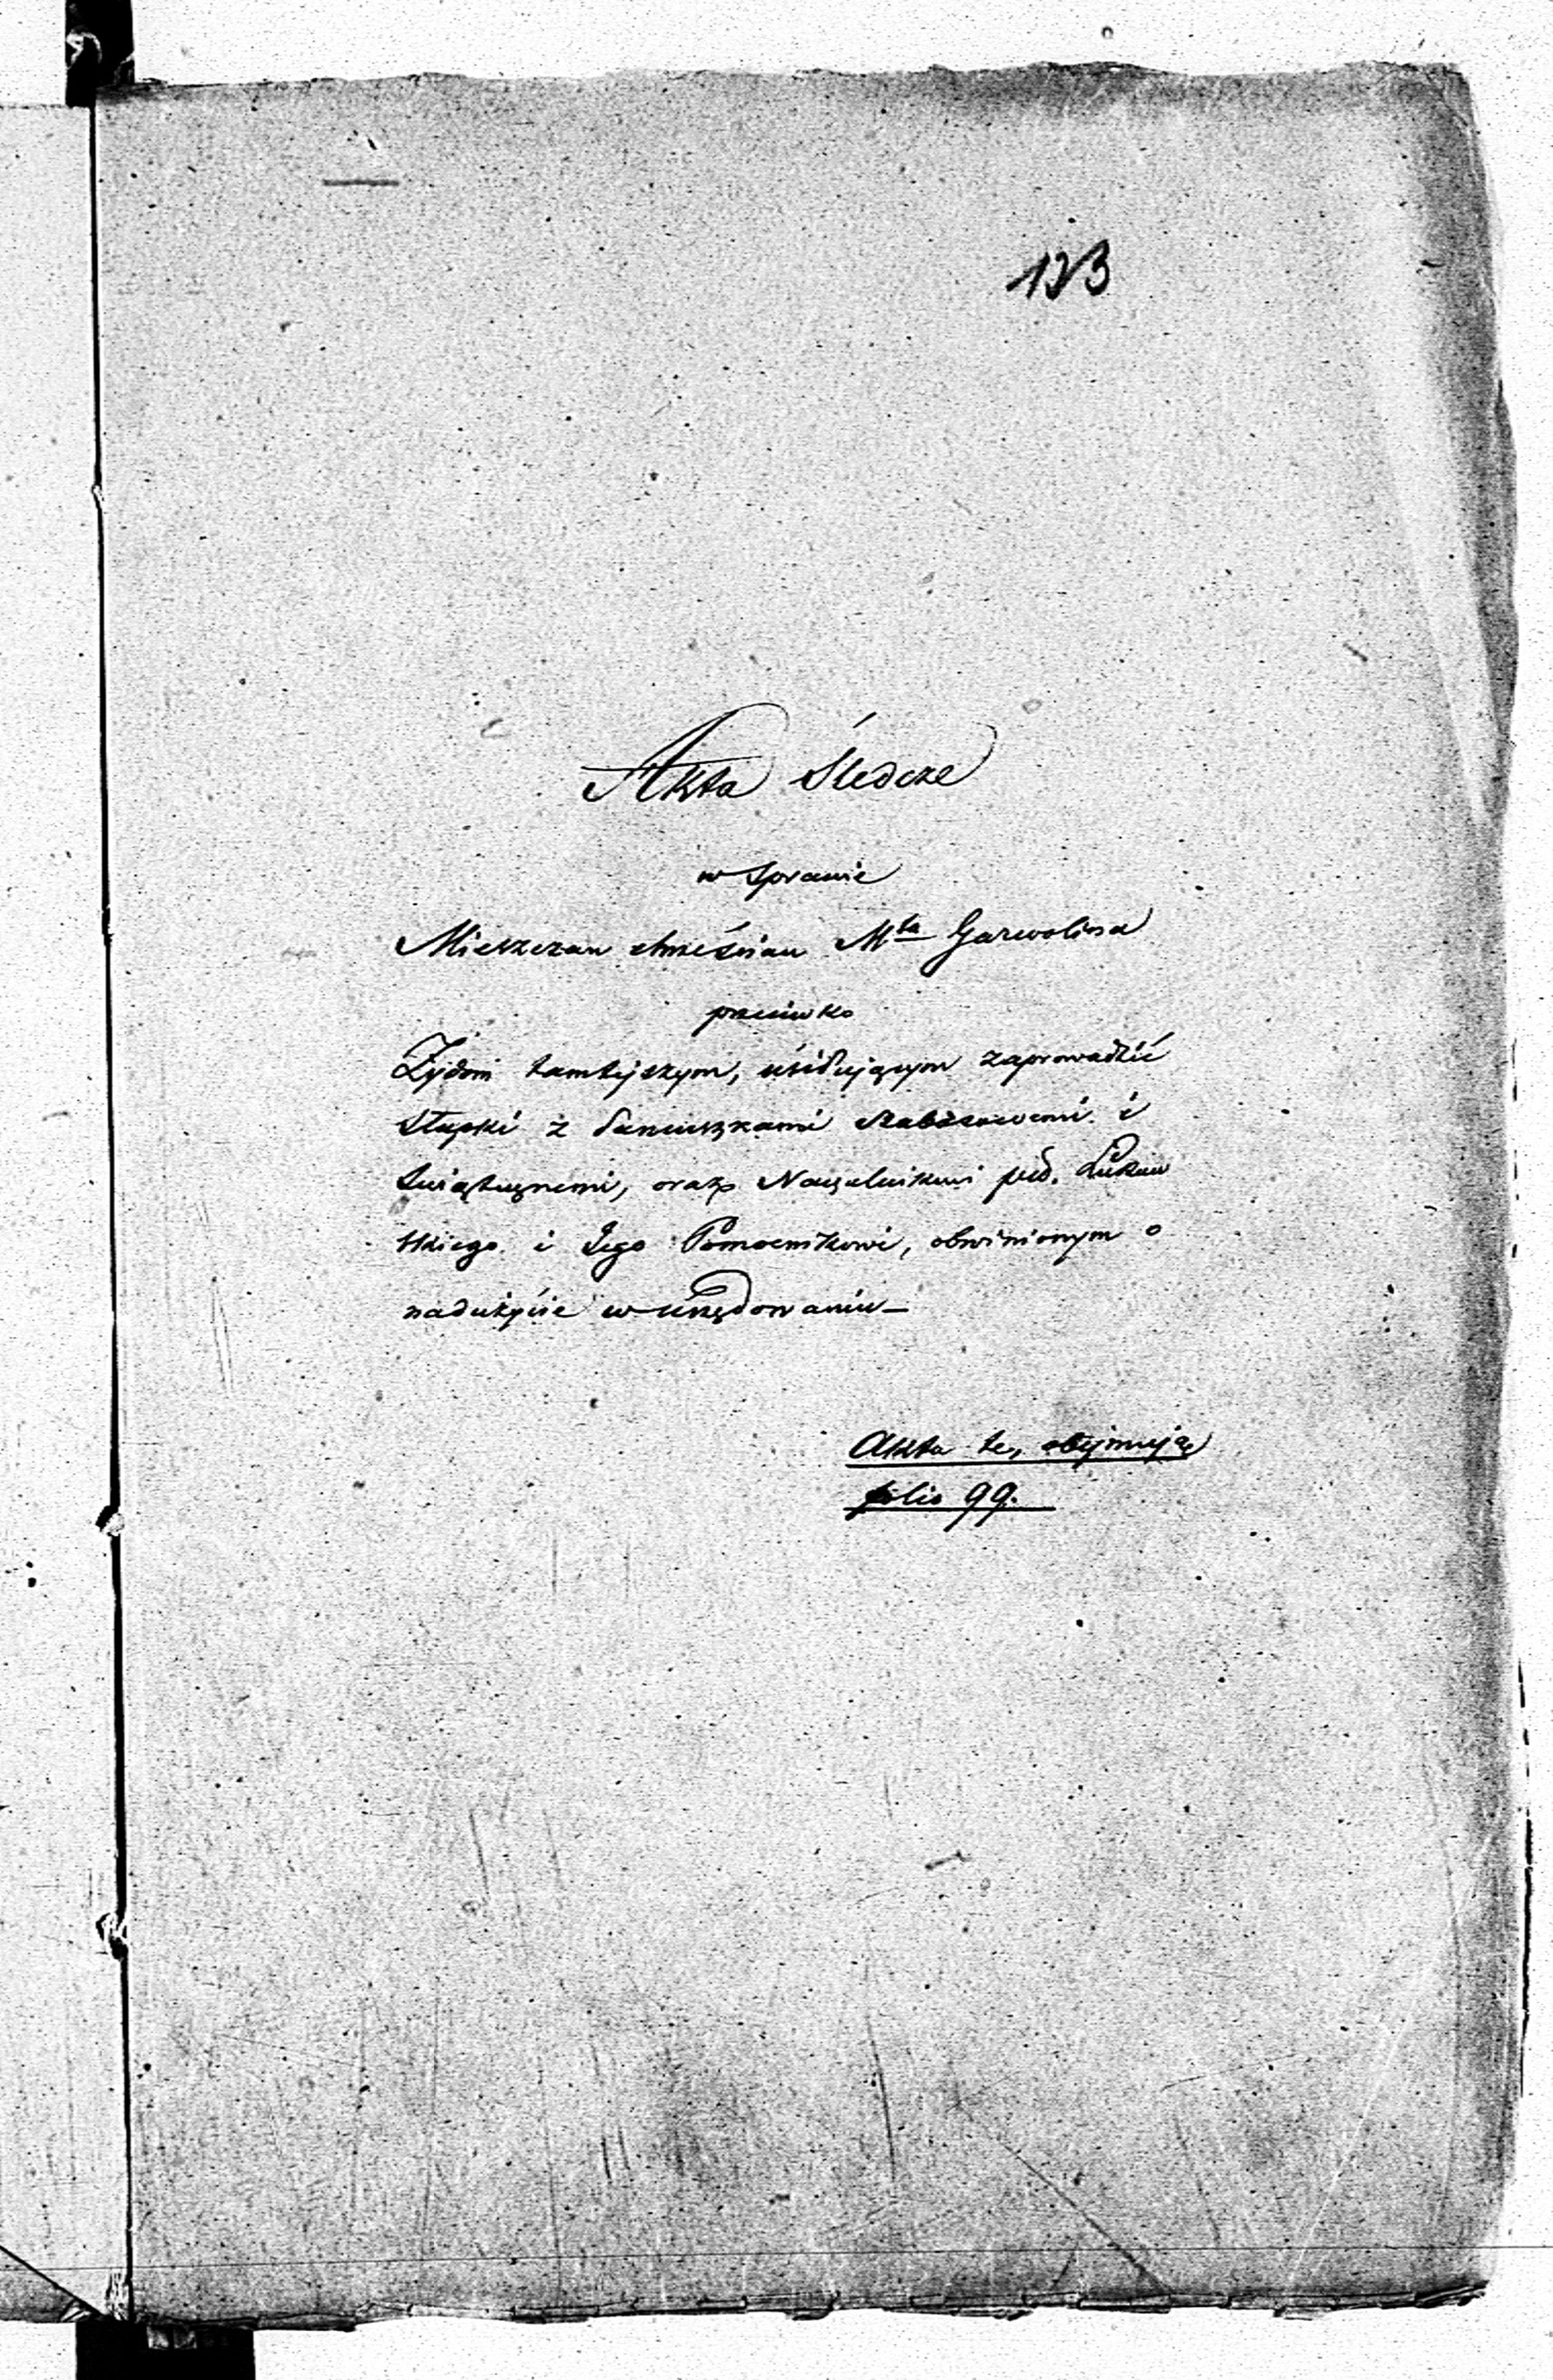 123
Akta Śledcze
w Sprawie
Mieszczan chrześcian Mta Garwolina
przeciwko
Żydom tamtejszym, usiłującym zaprowadzić
słupki z łańcuszkami szabasowemi i
świątecznemi, oraz Naczelnikowi pow. Łukow
skiego i Jego Pomocnikowi, obwinionym o
nadużycie w urzędowaniu
Akta te, obejmują
folio 99.